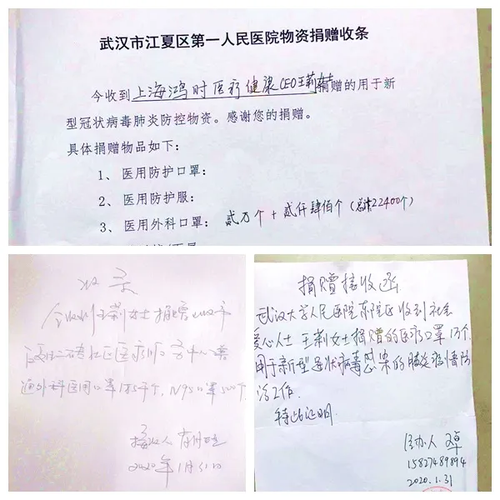 武汉市江夏区第一人民医院物资捐赠收条
今收到上海鸿时医疗健康CEO王莉女士捐赠的用于新
型冠状病毒肺炎防控物资。感谢您的捐赠。
具体捐赠物品如下：
1、 医用防护口罩：
2、 医用防护服：
3、 医用外科口罩： 贰万个 + 贰仟肆佰个（总计22400个）
收条
今收到王莉女士捐赠
通外科医用口罩 N95口罩500个
接收人
2020年1月31日
捐赠接收函
武汉大学人民医院东院区收到社会
爱心人士 王莉女士捐赠的医疗口罩1万个,
用于新型冠状病毒感染的肺炎疫情防
治工作.
特此证明.
经办人
15827489894
2020.1.31